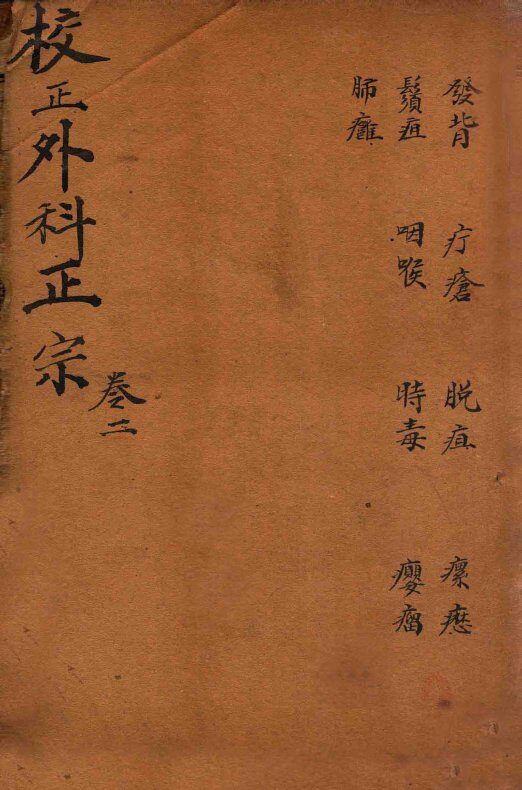 發背 疔瘡 脱疽 瘰癧
鬢疽 咽喉 時毒 癭瘤
肺癰
校正外科正宗
卷二